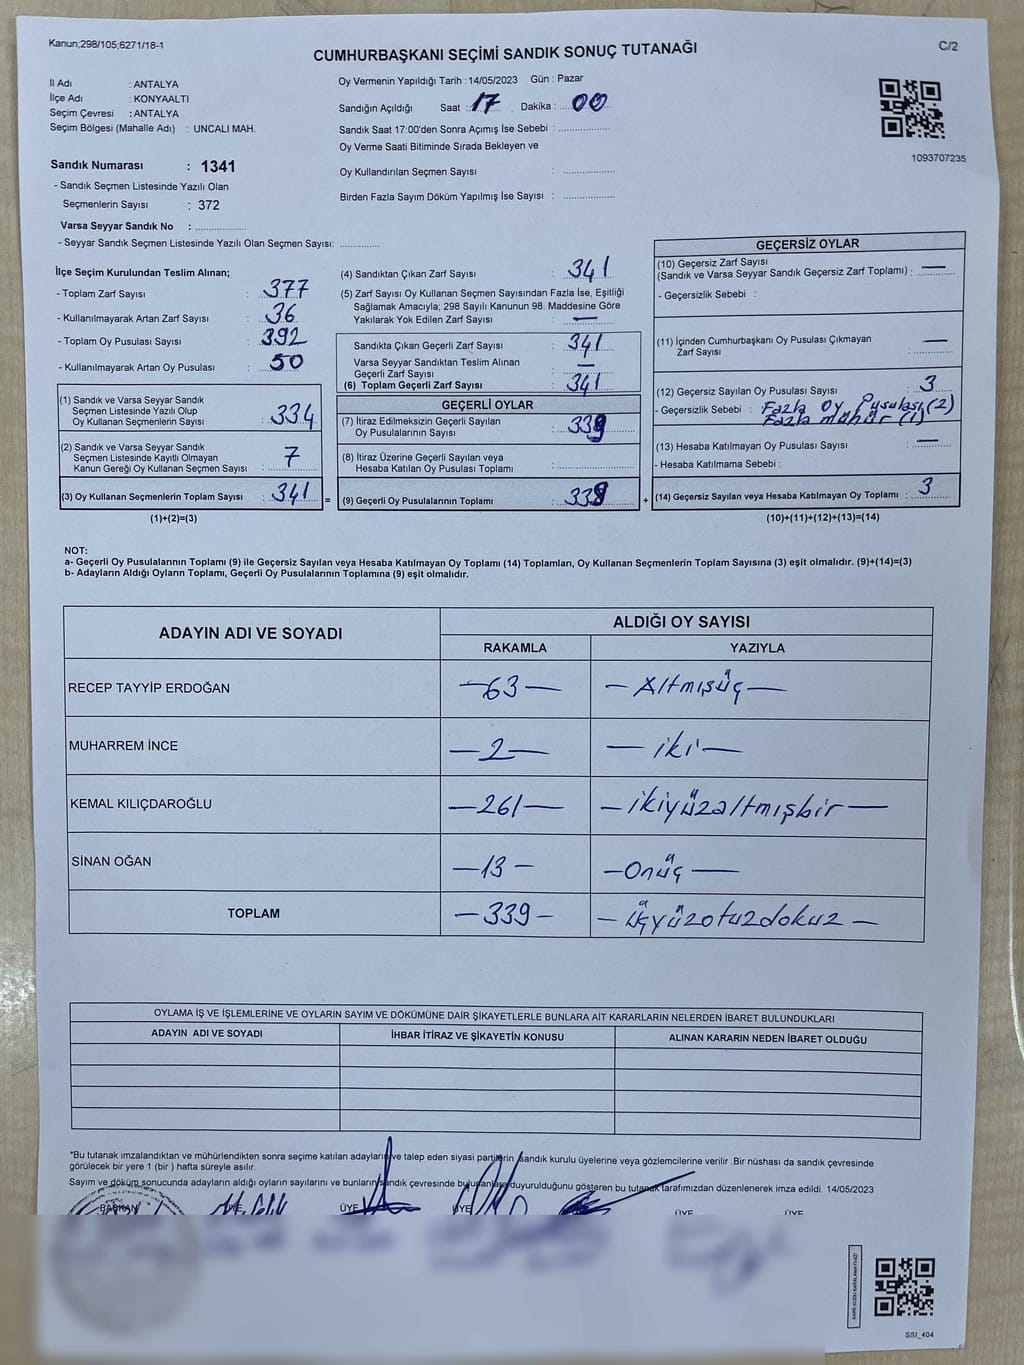 Kanun;298/105;6271/18-1
C/2
CUMHURBAŞKANI SEÇİMİ SANDIK SONUÇ TUTANAĞI
İl Adı : ANTALYA
İlçe Adı : KONYAALTI
Seçim Çevresi : ANTALYA
Seçim Bölgesi (Mahalle Adı) : UNCALI MAH.
Sandık Numarası : 1341
- Sandık Seçmen Listesinde Yazılı Olan
Seçmenlerin Sayısı : 372
Varsa Seyyar Sandık No : ................
- Seyyar Sandık Seçmen Listesinde Yazılı Olan Seçmen Sayısı: .............
Oy Vermenin Yapıldığı Tarih : 14/05/2023 Gün : Pazar
Sandığın Açıldığı Saat : 17 Dakika : 00
Sandık Saat 17:00'den Sonra Açımış İse Sebebi : .................
Oy Verme Saati Bitiminde Sırada Bekleyen ve
Oy Kullandırılan Seçmen Sayısı : .................
Birden Fazla Sayım Döküm Yapılmış İse Sayısı : .................
1093707235
İlçe Seçim Kurulundan Teslim Alınan;
- Toplam Zarf Sayısı : 377
- Kullanılmayarak Artan Zarf Sayısı : 36
- Toplam Oy Pusulası Sayısı : 392
- Kullanılmayarak Artan Oy Pusulası : 50
(1) Sandık ve Varsa Seyyar Sandık
Seçmen Listesinde Yazılı Olup
Oy Kullanan Seçmenlerin Sayısı : 334
(2) Sandık ve Varsa Seyyar Sandık
Seçmen Listesinde Kayıtlı Olmayan
Kanun Gereği Oy Kullanan Seçmen Sayısı : 7
(3) Oy Kullanan Seçmenlerin Toplam Sayısı : 341
(1)+(2)=(3)
(4) Sandıktan Çıkan Zarf Sayısı : 341
(5) Zarf Sayısı Oy Kullanan Seçmen Sayısından Fazla İse, Eşitliği
Sağlamak Amacıyla; 298 Sayılı Kanunun 98. Maddesine Göre
Yakılarak Yok Edilen Zarf Sayısı : —
Sandıkta Çıkan Geçerli Zarf Sayısı : 341
Varsa Seyyar Sandıktan Teslim Alınan
Geçerli Zarf Sayısı : —
(6) Toplam Geçerli Zarf Sayısı : 341
GEÇERLİ OYLAR
(7) İtiraz Edilmeksizin Geçerli Sayılan
Oy Pusulalarının Sayısı : 339
(8) İtiraz Üzerine Geçerli Sayılan veya
Hesaba Katılan Oy Pusulası Toplamı : .................
=
(9) Geçerli Oy Pusulalarının Toplamı : 339
+
GEÇERSİZ OYLAR
(10) Geçersiz Zarf Sayısı
(Sandık ve Varsa Seyyar Sandık Geçersiz Zarf Toplamı) : —
- Geçersizlik Sebebi :
(11) İçinden Cumhurbaşkanı Oy Pusulası Çıkmayan
Zarf Sayısı : —
(12) Geçersiz Sayılan Oy Pusulası Sayısı : 3
- Geçersizlik Sebebi : Fazla oy pusulası (2)
Fazla mühür (1)
(13) Hesaba Katılmayan Oy Pusulası Sayısı : —
- Hesaba Katılmama Sebebi :
(14) Geçersiz Sayılan veya Hesaba Katılmayan Oy Toplamı : 3
(10)+(11)+(12)+(13)=(14)
NOT:
a- Geçerli Oy Pusulalarının Toplamı (9) ile Geçersiz Sayılan veya Hesaba Katılmayan Oy Toplamı (14) Toplamları, Oy Kullanan Seçmenlerin Toplam Sayısına (3) eşit olmalıdır. (9)+(14)=(3)
b- Adayların Aldığı Oyların Toplamı, Geçerli Oy Pusulalarının Toplamına (9) eşit olmalıdır.
ADAYIN ADI VE SOYADI
ALDIĞI OY SAYISI
RAKAMLA YAZIYLA
RECEP TAYYİP ERDOĞAN —63— —Altmışüç—
MUHARREM İNCE —2— —iki—
KEMAL KILIÇDAROĞLU —261— —ikiyüzaltmışbir—
SİNAN OĞAN —13— —onüç—
TOPLAM —339— —üçyüzotuzdokuz—
OYLAMA İŞ VE İŞLEMLERİNE VE OYLARIN SAYIM VE DÖKÜMÜNE DAİR ŞİKAYETLERLE BUNLARA AİT KARARLARIN NELERDEN İBARET BULUNDUKLARI
ADAYIN ADI VE SOYADI İHBAR İTİRAZ VE ŞİKAYETİN KONUSU ALINAN KARARIN NEDEN İBARET OLDUĞU
*Bu tutanak imzalandıktan ve mühürlendikten sonra seçime katılan adayların ve talep eden siyasi partilerin sandık kurulu üyelerine veya gözlemcilerine verilir .Bir nüshası da sandık çevresinde
görülecek bir yere 1 (bir ) hafta süreyle asılır.
Sayım ve döküm sonucunda adayların aldığı oyların sayılarını ve bunların sandık çevresinde bulunanlara duyurulduğunu gösteren bu tutanak tarafımızdan düzenlenerek imza edildi. 14/05/2023
BAŞKAN ÜYE ÜYE ÜYE ÜYE ÜYE
SSI_404